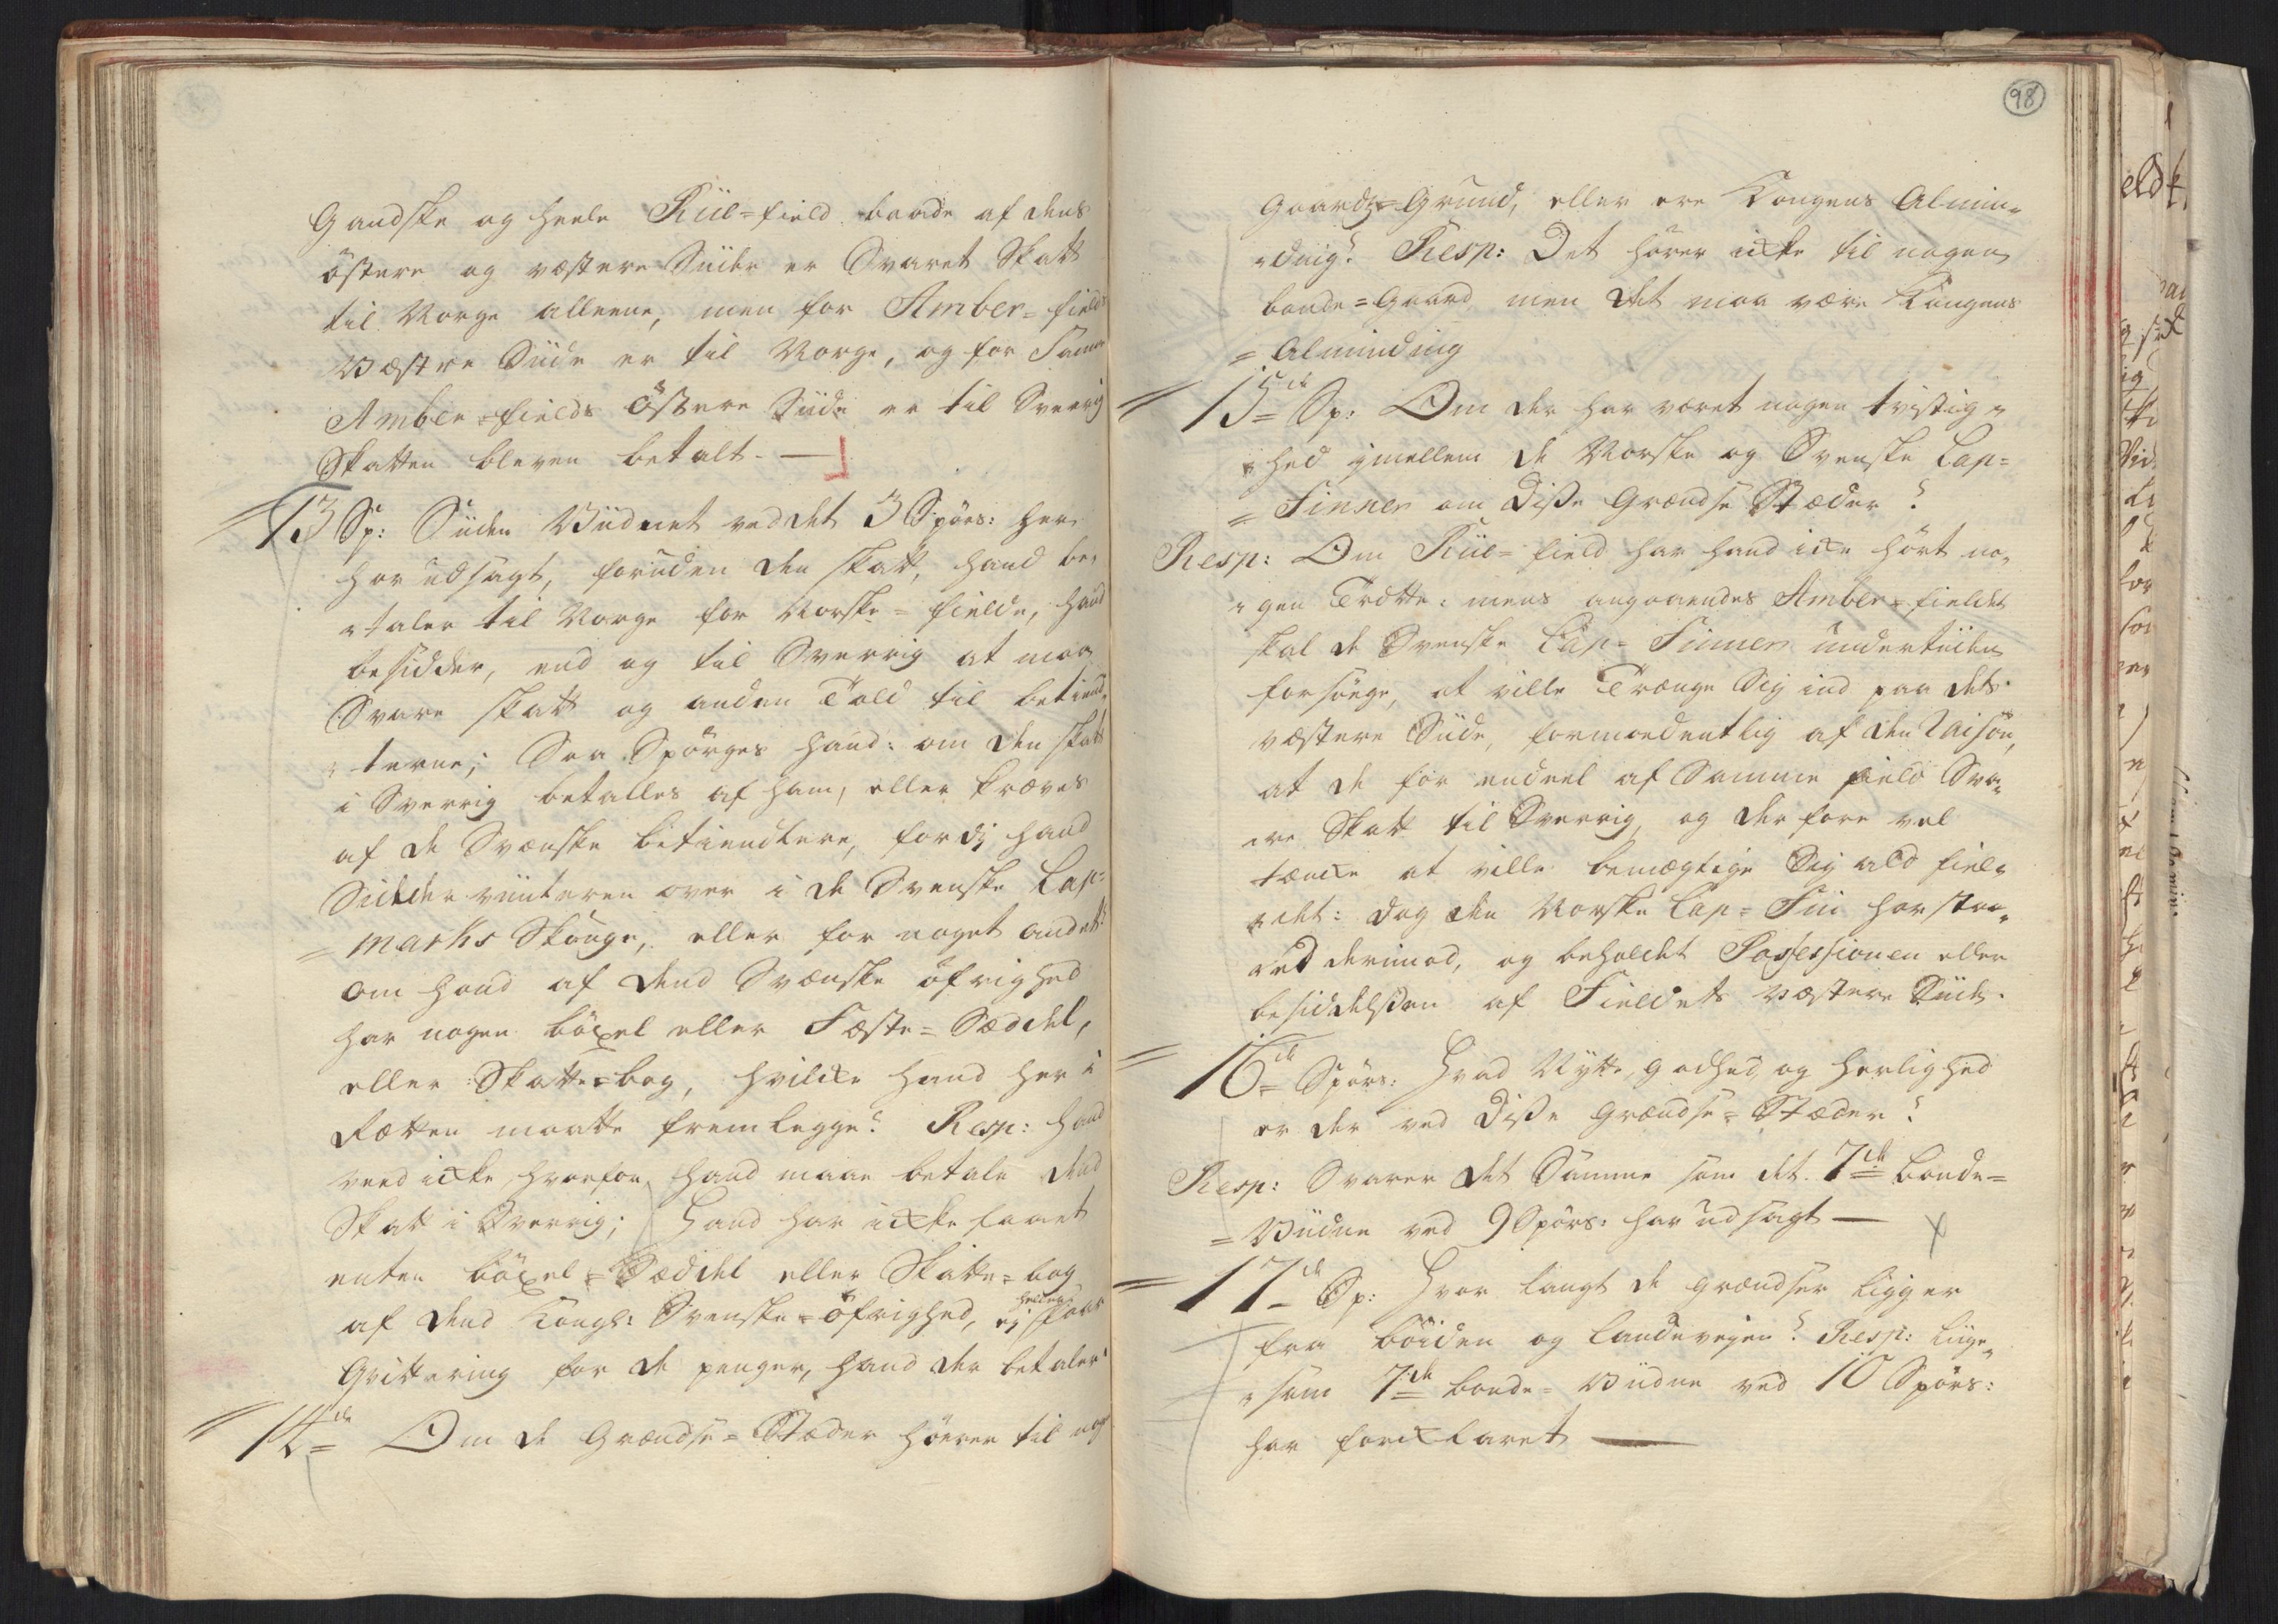 Gandske og heele Rüe=field baade af dens
östere og væstere Siide er Svaret Skatt
til Norge alleene, men for Amber=fields
Væstre Siide er til Norge, og for Samme
Amber=fields Östere Siide er til Sverrig
Skatten bleven betalt. —
13 Sp: Siden Viidnet ved det 3 Spörs: her
har udsagt, foruden den skatt, hand be=
=taler til Norge for Norske=fielde, hand
besidder, end og til Sverrig at maa
Svare skatt og anden Told til betiend=
=terne; Saa Spörges hand: om den skatt
i Sverrig betalles af ham, eller kræves
af de Svænske betiendtere, fordj hand
Sidder vinteren over i de Svenske Lap=
=marks Skouge, eller for noget andet?
om hand af dend Svænske öfrighed
har nogen böxel eller Fæste=Sæddel,
eller Skatte=bog, hvilcke hand her i
Rætten maatte fremlegge? Resp: hand
veed icke hvorfor hand maae betale dend
Skatt i Sverrig; Hand har icke faaet
enten böxel=Sæddel eller Skatte=bog
af dend Kongl: Svenske=öfrighed, ej heller faar
Qvittering for de penger, hand der betaler
14de Om de Grændse=Stæder hörer til nog
98
Gaardz=Grund, eller ere Kongens Almin=
=ding? Resp: Det hörer icke til nogen
bonde=Gaard men det maa være Kongens
=Alminding
15de Sp: Om der har været nogen tvistig=
=hed imellem de Norske og Svenske Lap=
=Finner om Disse Grændse Stæder?
Resp: Om Rüe=field har hand icke hört no=
=gen Trætte: mens angaaendes Amber=fieldet
skal de Svenske Lap=Finner undertiiden
forsöge, at ville Trænge Sig ind paa dets
væstere Siide, formodentlig af den Raison,
at de for endeel af Samme field Sva=
=re Skatt til Sverrig, og derfore vel
tæncke at ville bemægtige Sig ald fiel=
=det: dog den Norske Lap=Fin har staa=
=ed derimod, og beholdet Possessionen eller
besiddelsen af Fieldets væstere Siide.
16de Spörs: Hvad Nytte, godhed og herlighed
er der ved Disse Grændse=Stæder?
Resp: Svarer det Samme som det 7de bonde=
=Viidne ved 9 Spörs: har udsagt —
17de Sp: Hvor langt de Grændser ligger
fra böiden og landevejen? Resp: liige=
=som 7de bonde=Viidne ved 10 Spörs:
har forcklaret —